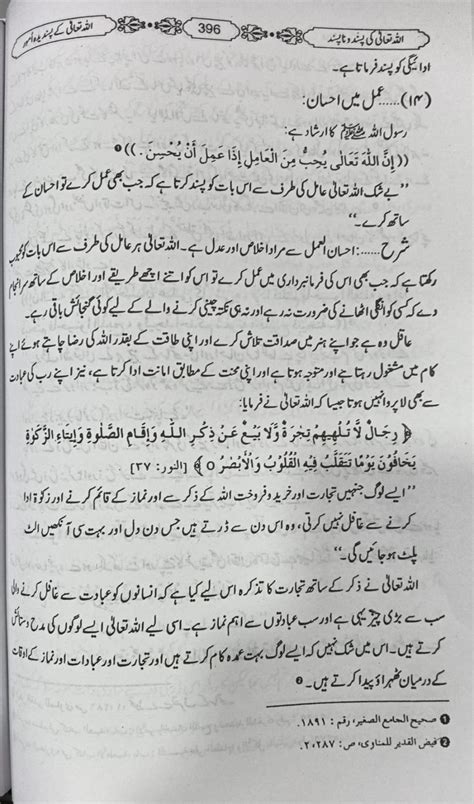 اللہ تعالیٰ کی پسند و ناپسند 396 اللہ تعالیٰ کے پسندیدہ اُمور
ادائیگی کو پسند فرماتا ہے۔
(۱۴)......عمل میں احسان:
رسول اللہ ﷺ کا ارشاد ہے:
((إِنَّ اللّٰهَ تَعَالٰى يُحِبُّ مِنَ الْعَامِلِ إِذَا عَمِلَ أَنْ يُحْسِنَ.)) ❶
”بے شک اللہ تعالیٰ عامل کی طرف سے اس بات کو پسند کرتا ہے کہ جب بھی عمل کرے تو احسان کے
ساتھ کرے۔“
شرح ......: احسان العمل سے مراد اخلاص اور عدل ہے۔ اللہ تعالیٰ ہر عامل کی طرف سے اس بات کو محبوب
رکھتا ہے کہ جب بھی اس کی فرمانبرداری میں عمل کرے تو اس کو اتنے اچھے طریقے اور اخلاص کے ساتھ سرانجام
دے کہ کسی کو انگلی اٹھانے کی ضرورت نہ رہے اور نہ ہی نکتہ چینی کرنے والے کے لیے کوئی گنجائش باقی رہے۔
عاقل وہ ہے جو اپنے ہنر میں صداقت تلاش کرے اور اپنی طاقت کے بقدر اللہ کی رضا چاہتے ہوئے اپنے
کام میں مشغول رہتا ہے اور متوجہ ہوتا ہے اور اپنی محنت کے مطابق امانت ادا کرتا ہے، نیز اپنے رب کی عبادت
سے بھی لا پروا نہیں ہوتا جیسا کہ اللہ تعالیٰ نے فرمایا:
﴿رِجَالٌ لَّا تُلْهِيهِمْ تِجٰرَةٌ وَّلَا بَيْعٌ عَنْ ذِكْرِ اللّٰهِ وَإِقَامِ الصَّلٰوةِ وَإِيتَاءِ الزَّكٰوةِ
يَخَافُونَ يَوْمًا تَتَقَلَّبُ فِيهِ الْقُلُوبُ وَالْأَبْصٰرُ ٥﴾ [النور: ۳۷]
”ایسے لوگ جنہیں تجارت اور خرید و فروخت اللہ کے ذکر سے اور نماز کے قائم کرنے اور زکوٰۃ ادا
کرنے سے غافل نہیں کرتی، وہ اس دن سے ڈرتے ہیں جس دن دل اور بہت سی آنکھیں الٹ
پلٹ ہو جائیں گی۔“
اللہ تعالیٰ نے ذکر کے ساتھ تجارت کا تذکرہ اس لیے کیا ہے کہ انسانوں کو عبادت سے غافل کرنے والی
سب سے بڑی چیز یہی ہے اور سب عبادتوں سے اہم نماز ہے۔ اسی لیے اللہ تعالیٰ ایسے لوگوں کی مدح و ستائش
کرتے ہیں۔ اس میں شک نہیں کہ ایسے لوگ بہت عمدہ کام کرتے ہیں اور تجارت اور عبادات اور نماز کے اوقات
کے درمیان ٹھہراؤ پیدا کرتے ہیں۔ ❷
❶ صحیح الجامع الصغیر، رقم : ۱۸۹۱.
❷ فیض القدیر للمناوی، ص: ۲۸۷،۲.